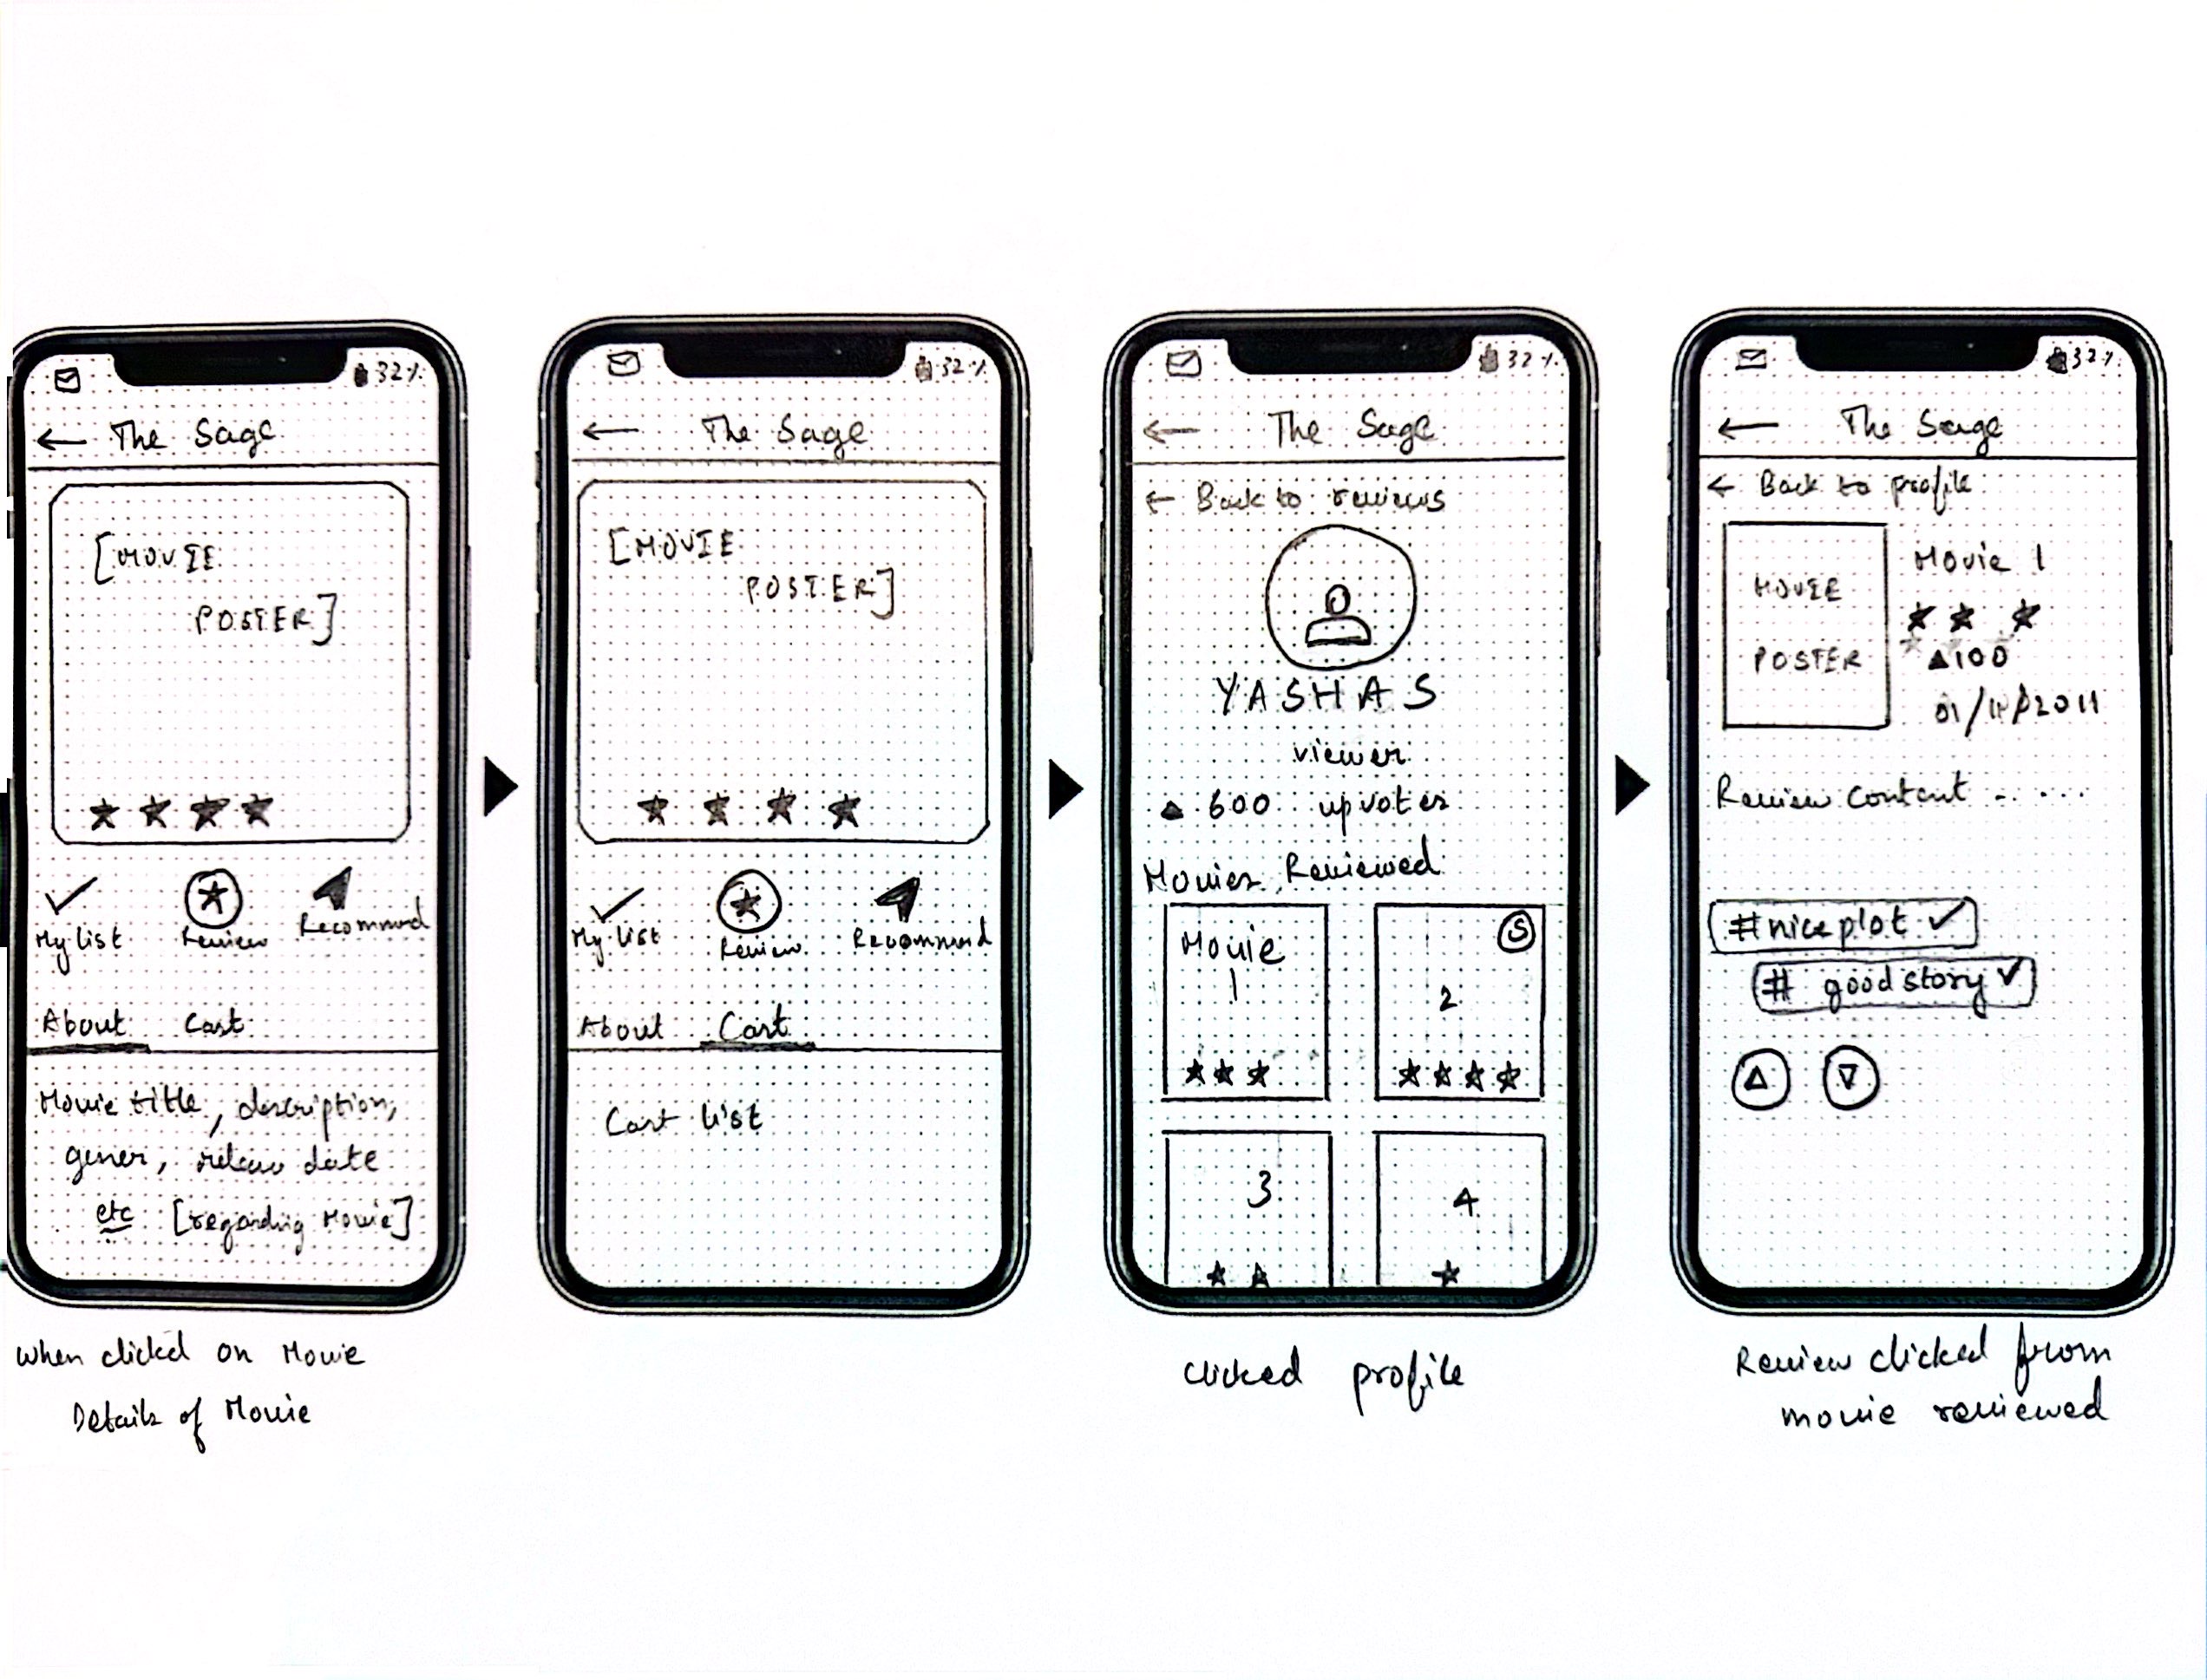 32%
The Sage
[MOVIE
POSTER]
My list
Review
Recommend
About Cast
Movie title, description,
gener, release date
etc [regarding Movie]
When clicked on Movie
Details of Movie
32%
The Sage
[MOVIE
POSTER]
My list
Review
Recommend
About Cast
Cast list
32%
The Sage
← Back to reviews
YASHAS
viewer
▲ 600 upvotes
Movies Reviewed
Movie
1
S
2
3
4
Clicked profile
32%
The Sage
← Back to profile
MOVIE
POSTER
Movie 1
▲100
Review Content - ....
#niceplot ✓
# goodstory ✓
Review clicked from
movie reviewed